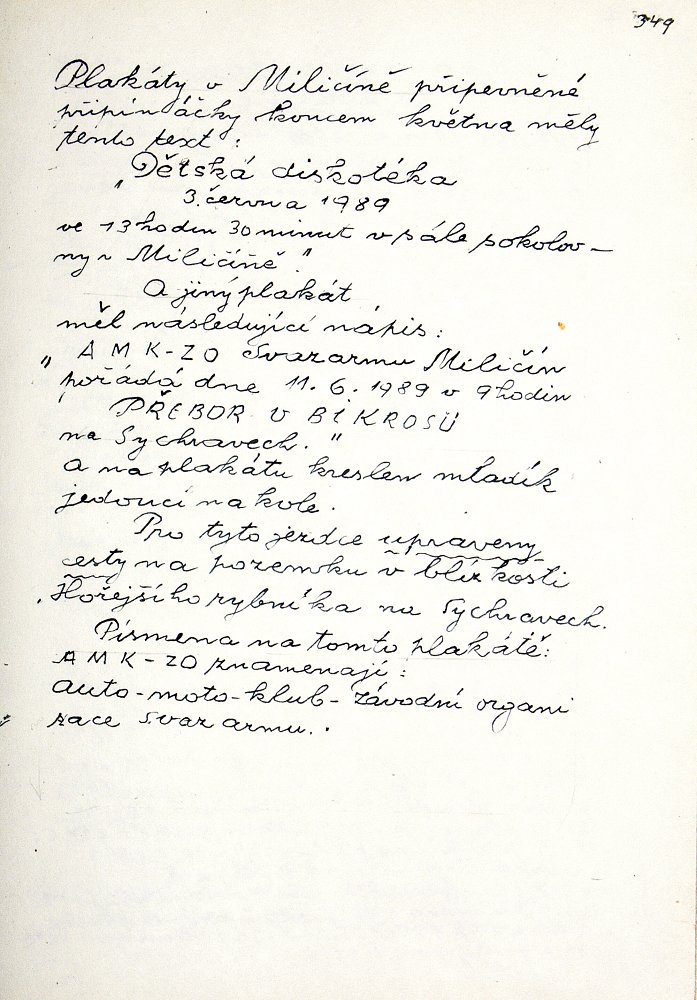 349
Plakáty v Miličíně připevněné
připínáčky koncem května měly
tento text:
„Dětská diskotéka
3. června 1989
ve 13 hodin 30 minut v sále sokolov-
ny v Miličíně."
A jiný plakát
měl následující nápis:
„AMK-ZO Svazarmu Miličín
pořádá dne 11. 6. 1989 v 9 hodin
PŘEBOR V BIKROSU
na Sychravech."
a na plakátu kreslen mladík
jedoucí na kole.
Pro tyto jezdce upraveny
cesty na pozemku v blízkosti
Hořejšího rybníka na Sychravech.
Písmena na tomto plakátě:
AMK-ZO znamenají:
auto-moto-klub-závodní organi
zace Svazarmu..